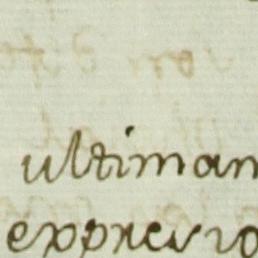 ultiman
expresio